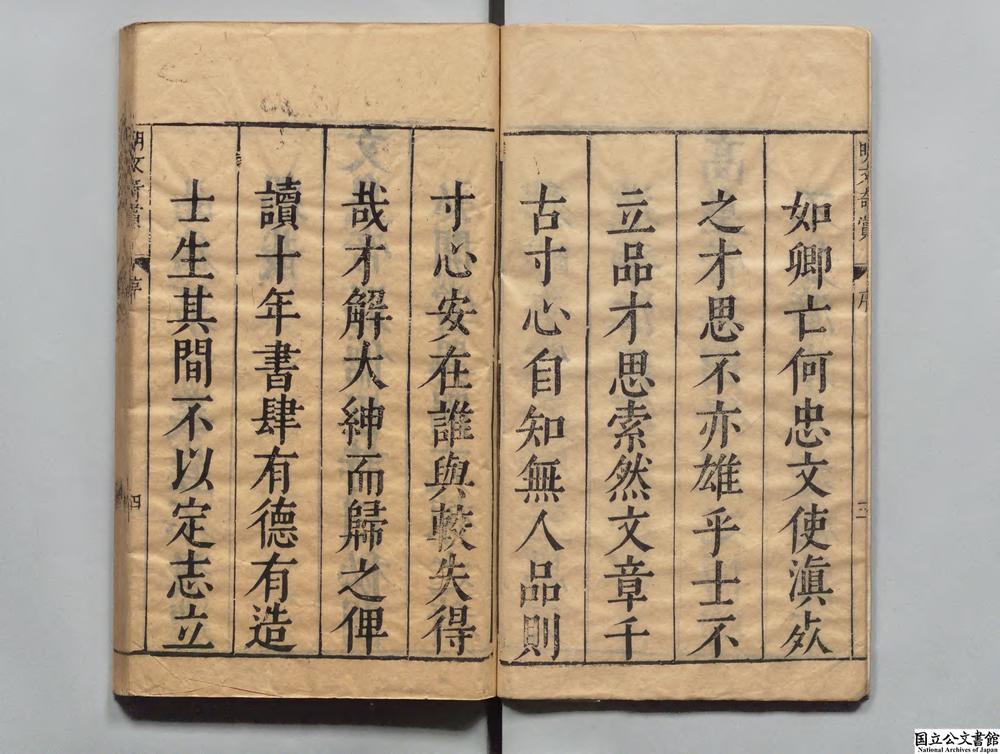 明文奇賞
序
三
如卿亡何忠文使滇歿
之才思不亦雄乎士不
立品才思索然文章千
古寸心自知無人品則
寸心安在誰與較失得
哉才解大紳而歸之俾
讀十年書肆有德有造
士生其間不以定志立
明文奇賞
序
四
国立公文書館
National Archives of Japan